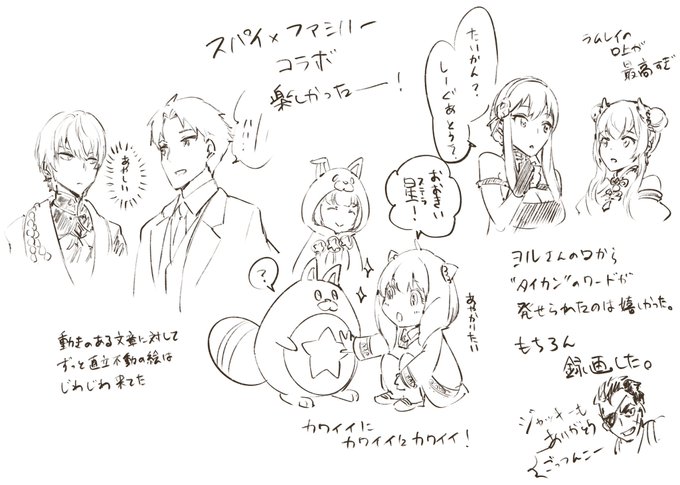 スパイ×ファミリー
コラボ
楽しかったー!
ラムレイの
口上が
最高すぎ
たいかん?
しーぐあとぅす?
あやしい
おおきい
星!
あやかりたい
?
ヨルさんの口から
"タイカン"のワードが
発せられたのは嬉しかった。
もちろん
録画した。
動きのある文章に対して
ずっと直立不動の絵は
じわじわ来てた
カワイイに
カワイイはカワイイ!
ジャッキーも
ありがとう
ごっつんこー